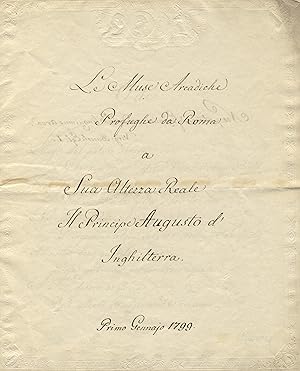 Le Muse Arcadiche
Profughe da Roma
a
Sua Altezza Reale
Il Principe Augusto d'
Inghilterra.
Primo Gennajo 1799.